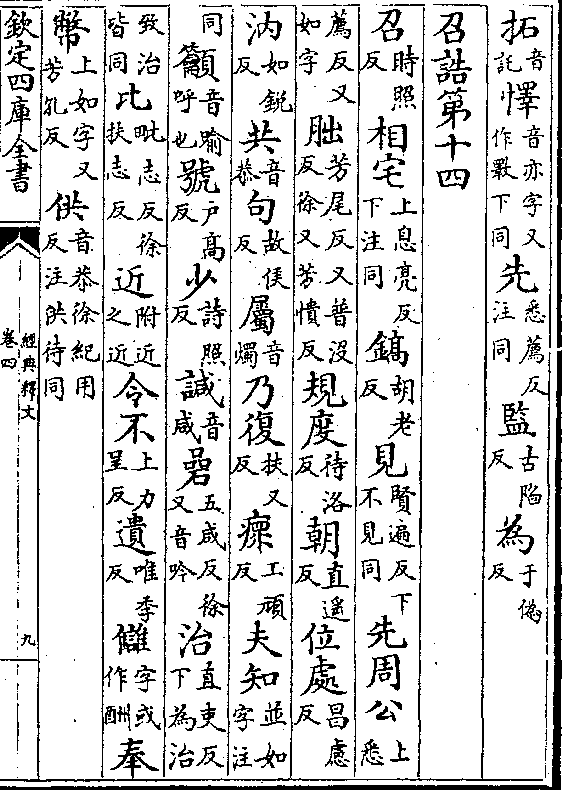 拓音託懌音亦字又作斁下同先悉薦反注同監古陷反為于偽反
召誥第十四
召時照反相宅上息亮反下注同鎬胡老反見賢遍反下不見同先周公上悉
薦反又如字朏芳尾反又普沒反徐又芳憒反規度待洛反朝直遥反位處昌慮反
汭如銳反共音恭句故侯反屬音燭乃復扶又反瘝工頑反夫知並如字注
同籲音喻呼也號户高反少詩照反諴音咸碞五咸反徐又音吟治直吏反下為治
致治皆同比毗志反徐扶志反近附近之近令不上力呈反遺唯季反讎字或作酬奉
幣上如字又芳孔反供音恭徐紀用反注供待同
欽定四庫全書
經典釋文
卷四
九